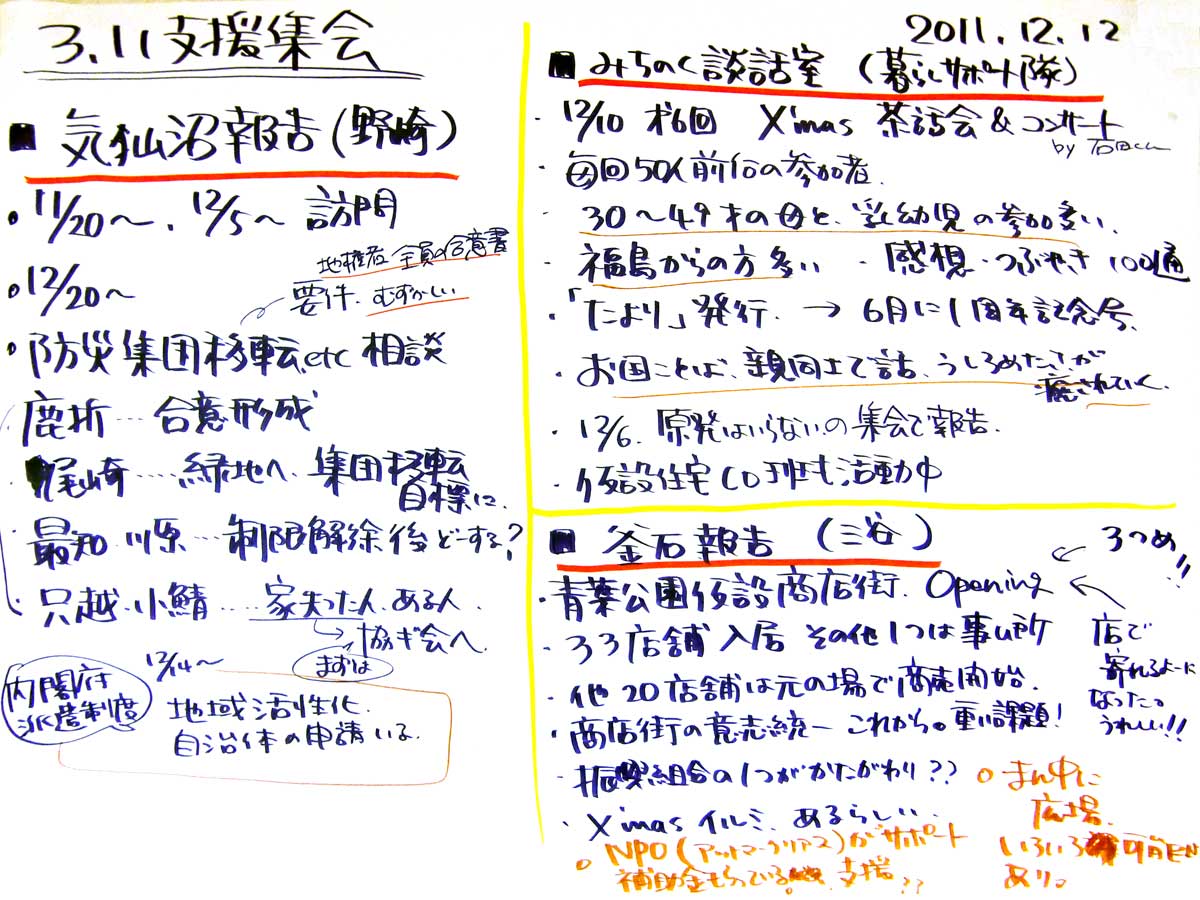 3.11支援集会
■ 気仙沼報告(野崎)
・11/20〜、12/5〜 訪問
・12/20〜
地権者 全員の合意書
要件 むずかしい
・防災集団移転.etc 相談
鹿折…合意形成
尾崎….緑地へ 集団移転
目標に.
最知 川原…制限解除後どーする?
只越・小鯖….家失った人、ある人.
→協ギ会へ
まずは
内閣府
派遣制度
12/14〜
地域活性化.
自治体の申請いる.
2011.12.12
■ みちのく談話室 (暮らしサポート隊)
・12/10 才6回 X'mas 茶話会&コンサート
by 石田くん
・毎回50人前后の参加者.
・30〜49才の母と、乳幼児の参加多い.
・福島からの方多い ・感想・つぶやき 100通
・「たより」発行. → 6月に1周年記念号.
・お国ことば、親同士で話、うしろめたさが
癒されていく.
・12/6. 原発はいらないの集会で報告.
・仮設住宅CD班も活動中
■ 釜石報告 (三谷)
3つめ!!
・青葉公園仮設商店街. Opening
・33店舗入居 その他1つは事ム所
・他20店舗は元の場で商売開始.
・商店街の意志統一 これから。重い課題!
店で
寄れるように
なったっ
うれしい!!
・振興組合の1つがかたがわり??
・X'masイルミ. あるらしい.
○ NPO(アットマークリアス)がサポート
補助金もらっている 支援??
○ まん中に
広場.
いろいろ可能性
あり。